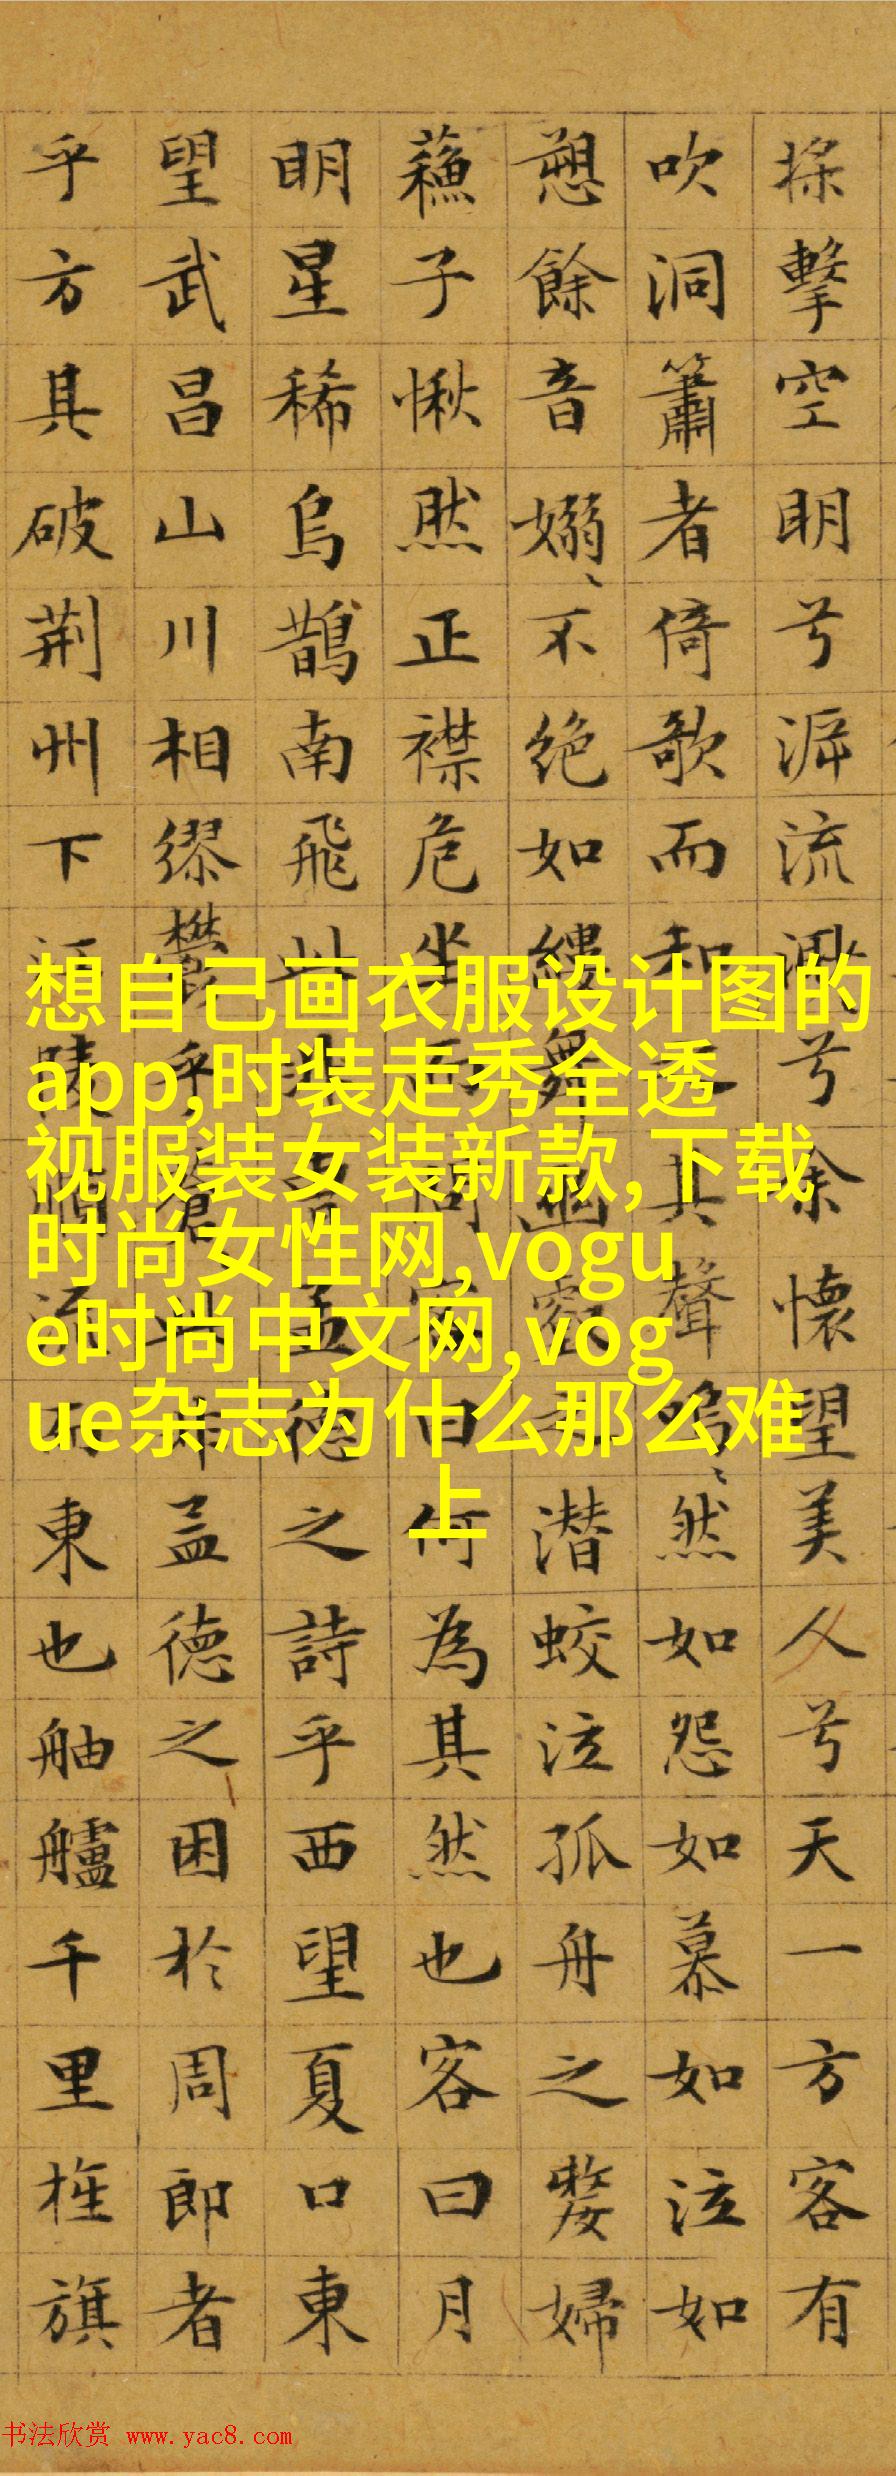 擊空明兮泝流兮余懷望美人兮天一方客有
吹洞簫者倚歌而和其聲嗚〻然如怨如慕如泣如
愬餘音嫋〻不絕如縷舞幽壑潛蛟泣孤舟之嫠婦
蘇子愀然正襟危坐問客曰何為其然也客曰月
明星稀烏鵲南飛此孟德之詩乎西望夏口東
望武昌山川相繆鬱乎蒼此孟德之困於周郎者
乎方其破荊州下江陵順流而東也舳艫千里旌旗
想自己画衣服设计图的
app,时装走秀全透
视服装女装新款,下载
时尚女性网,vogu
e时尚中文网,vog
ue杂志为什么那么难
上
书法欣赏 www.yac8.com